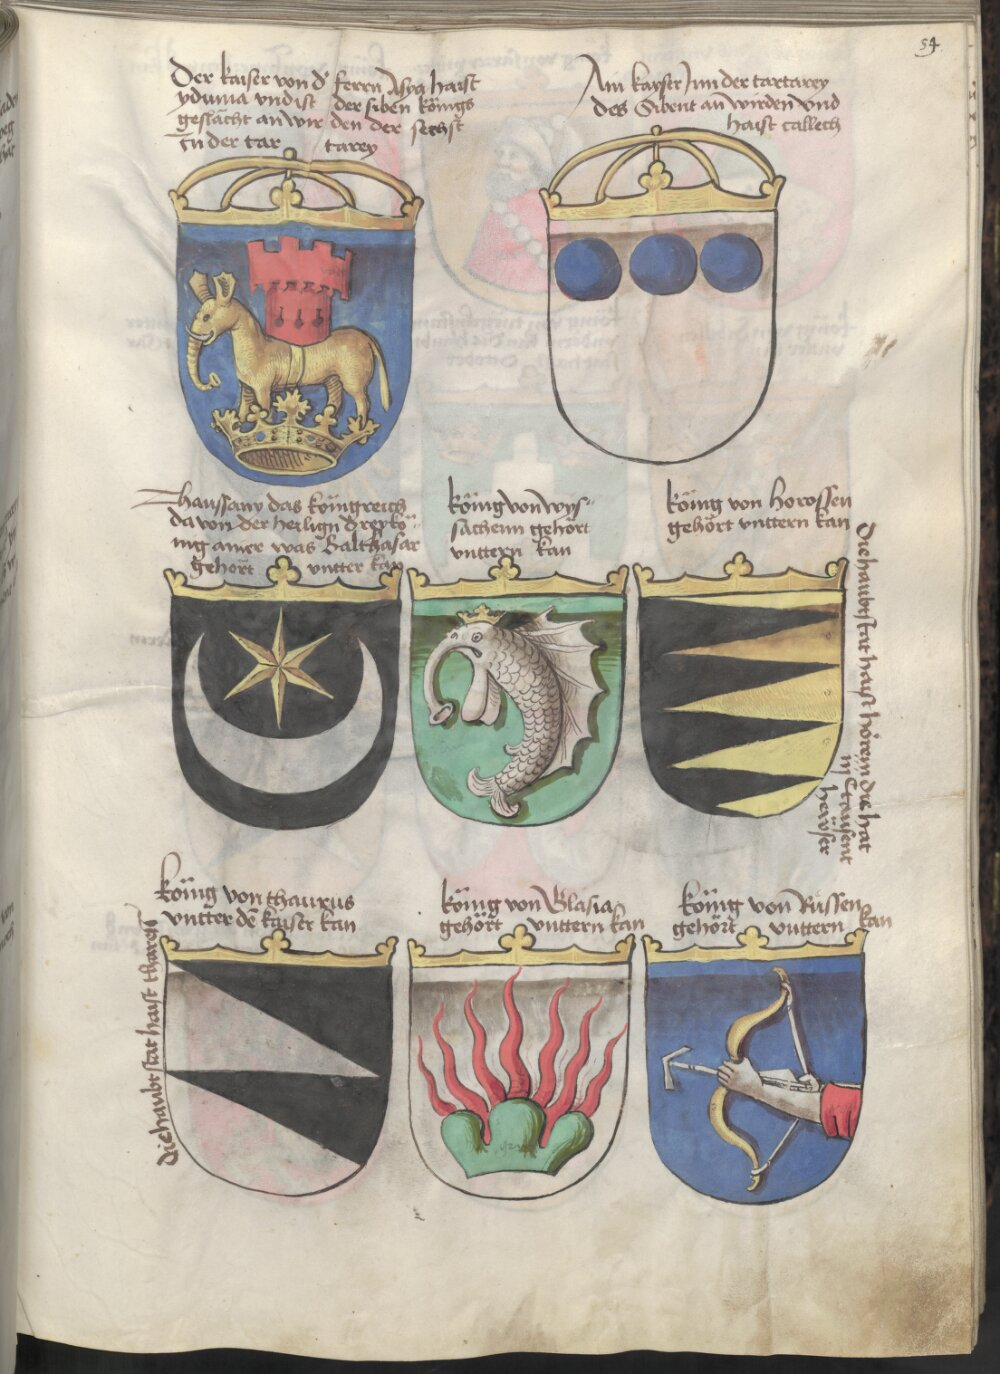 54.
Der kaiser von d' ferrn Asya haist
yduma vnd ist der siben königs
geslächt an wir den der sechst
in der tar tarey
Ain kayser Jnn der tartarey
des Sibent an wirden vnd
haist callech
Thaussany das köingreich
da von der heilign dreykö-
nig ainer was Balthasar
gehört vntter kan
köing von wys-
sachenn gehört
vnttern kan
köing von horossen
gehört vnttern kan
die haubtstat haist horein die hat
tausent
hewser
köing von thaurus
vntter dē kaiser kan
die haubtstat haist
köing von Blasia
gehört vnttern kan
köing von Rüssen
gehört vnttern kan